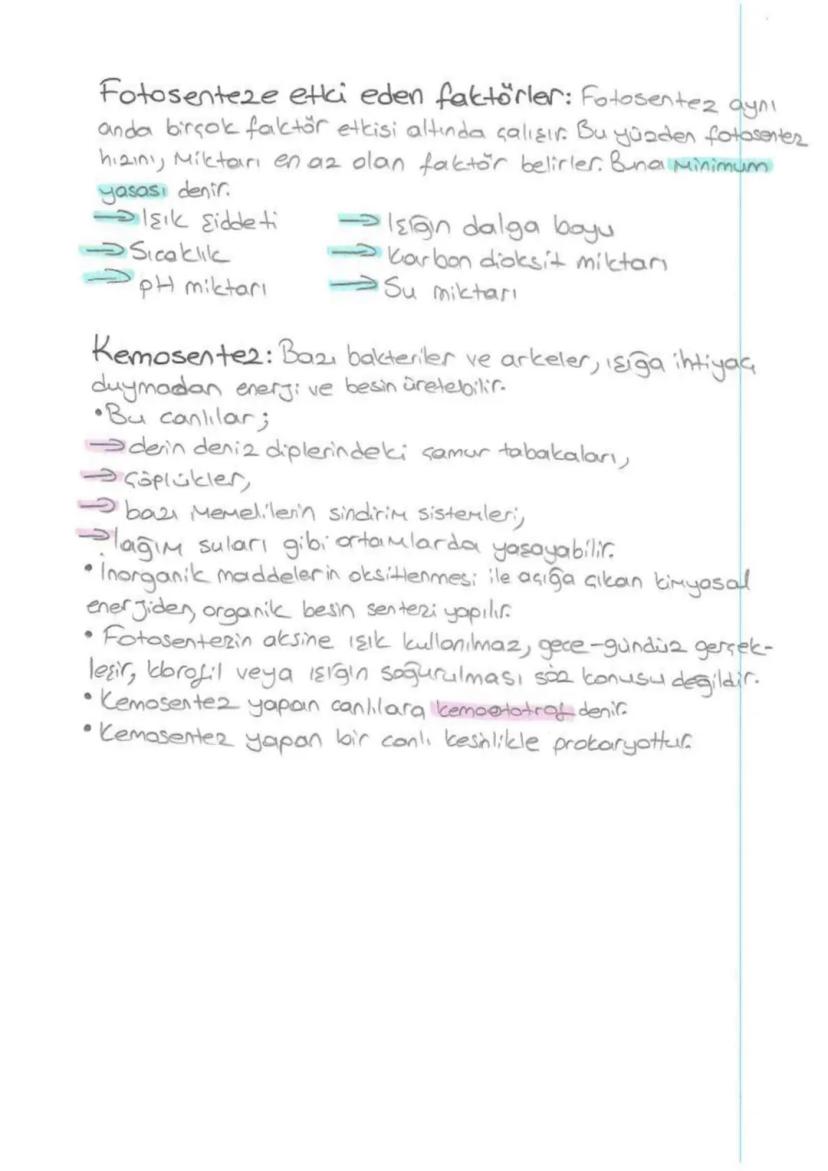 Fotosenteze etki eden faktörler: Fotosentez aynı
anda birçok faktör etkisi altında çalışır. Bu yüzden fotosentez
hızını, Miktarı en az olan faktör belirler. Buna Minimum
yasası denir.
→ Işık şiddeti → Işığın dalga boyu
→ Sıcaklık → Karbon dioksit miktarı
→ pH miktarı → Su miktarı
Kemosentez: Bazı bakteriler ve arkeler, ışığa ihtiyaç
duymadan enerji ve besin üretebilir.
• Bu canlılar;
→ derin deniz diplerindeki çamur tabakaları,
→ çöplükler,
→ bazı Memelilerin sindirim sistemleri,
→ lağım suları gibi ortamlarda yaşayabilir.
• İnorganik maddelerin oksitlenmesi ile açığa çıkan kimyasal
enerjiden, organik besin sentezi yapılır.
• Fotosentezin aksine ışık kullanılmaz, gece-gündüz gerçek-
leşir, klorofil veya ışığın soğurulması söz konusu değildir.
• Kemosentez yapan canlılara kemoototrof denir.
• Kemosentez yapan bir canlı kesinlikle prokaryottur.